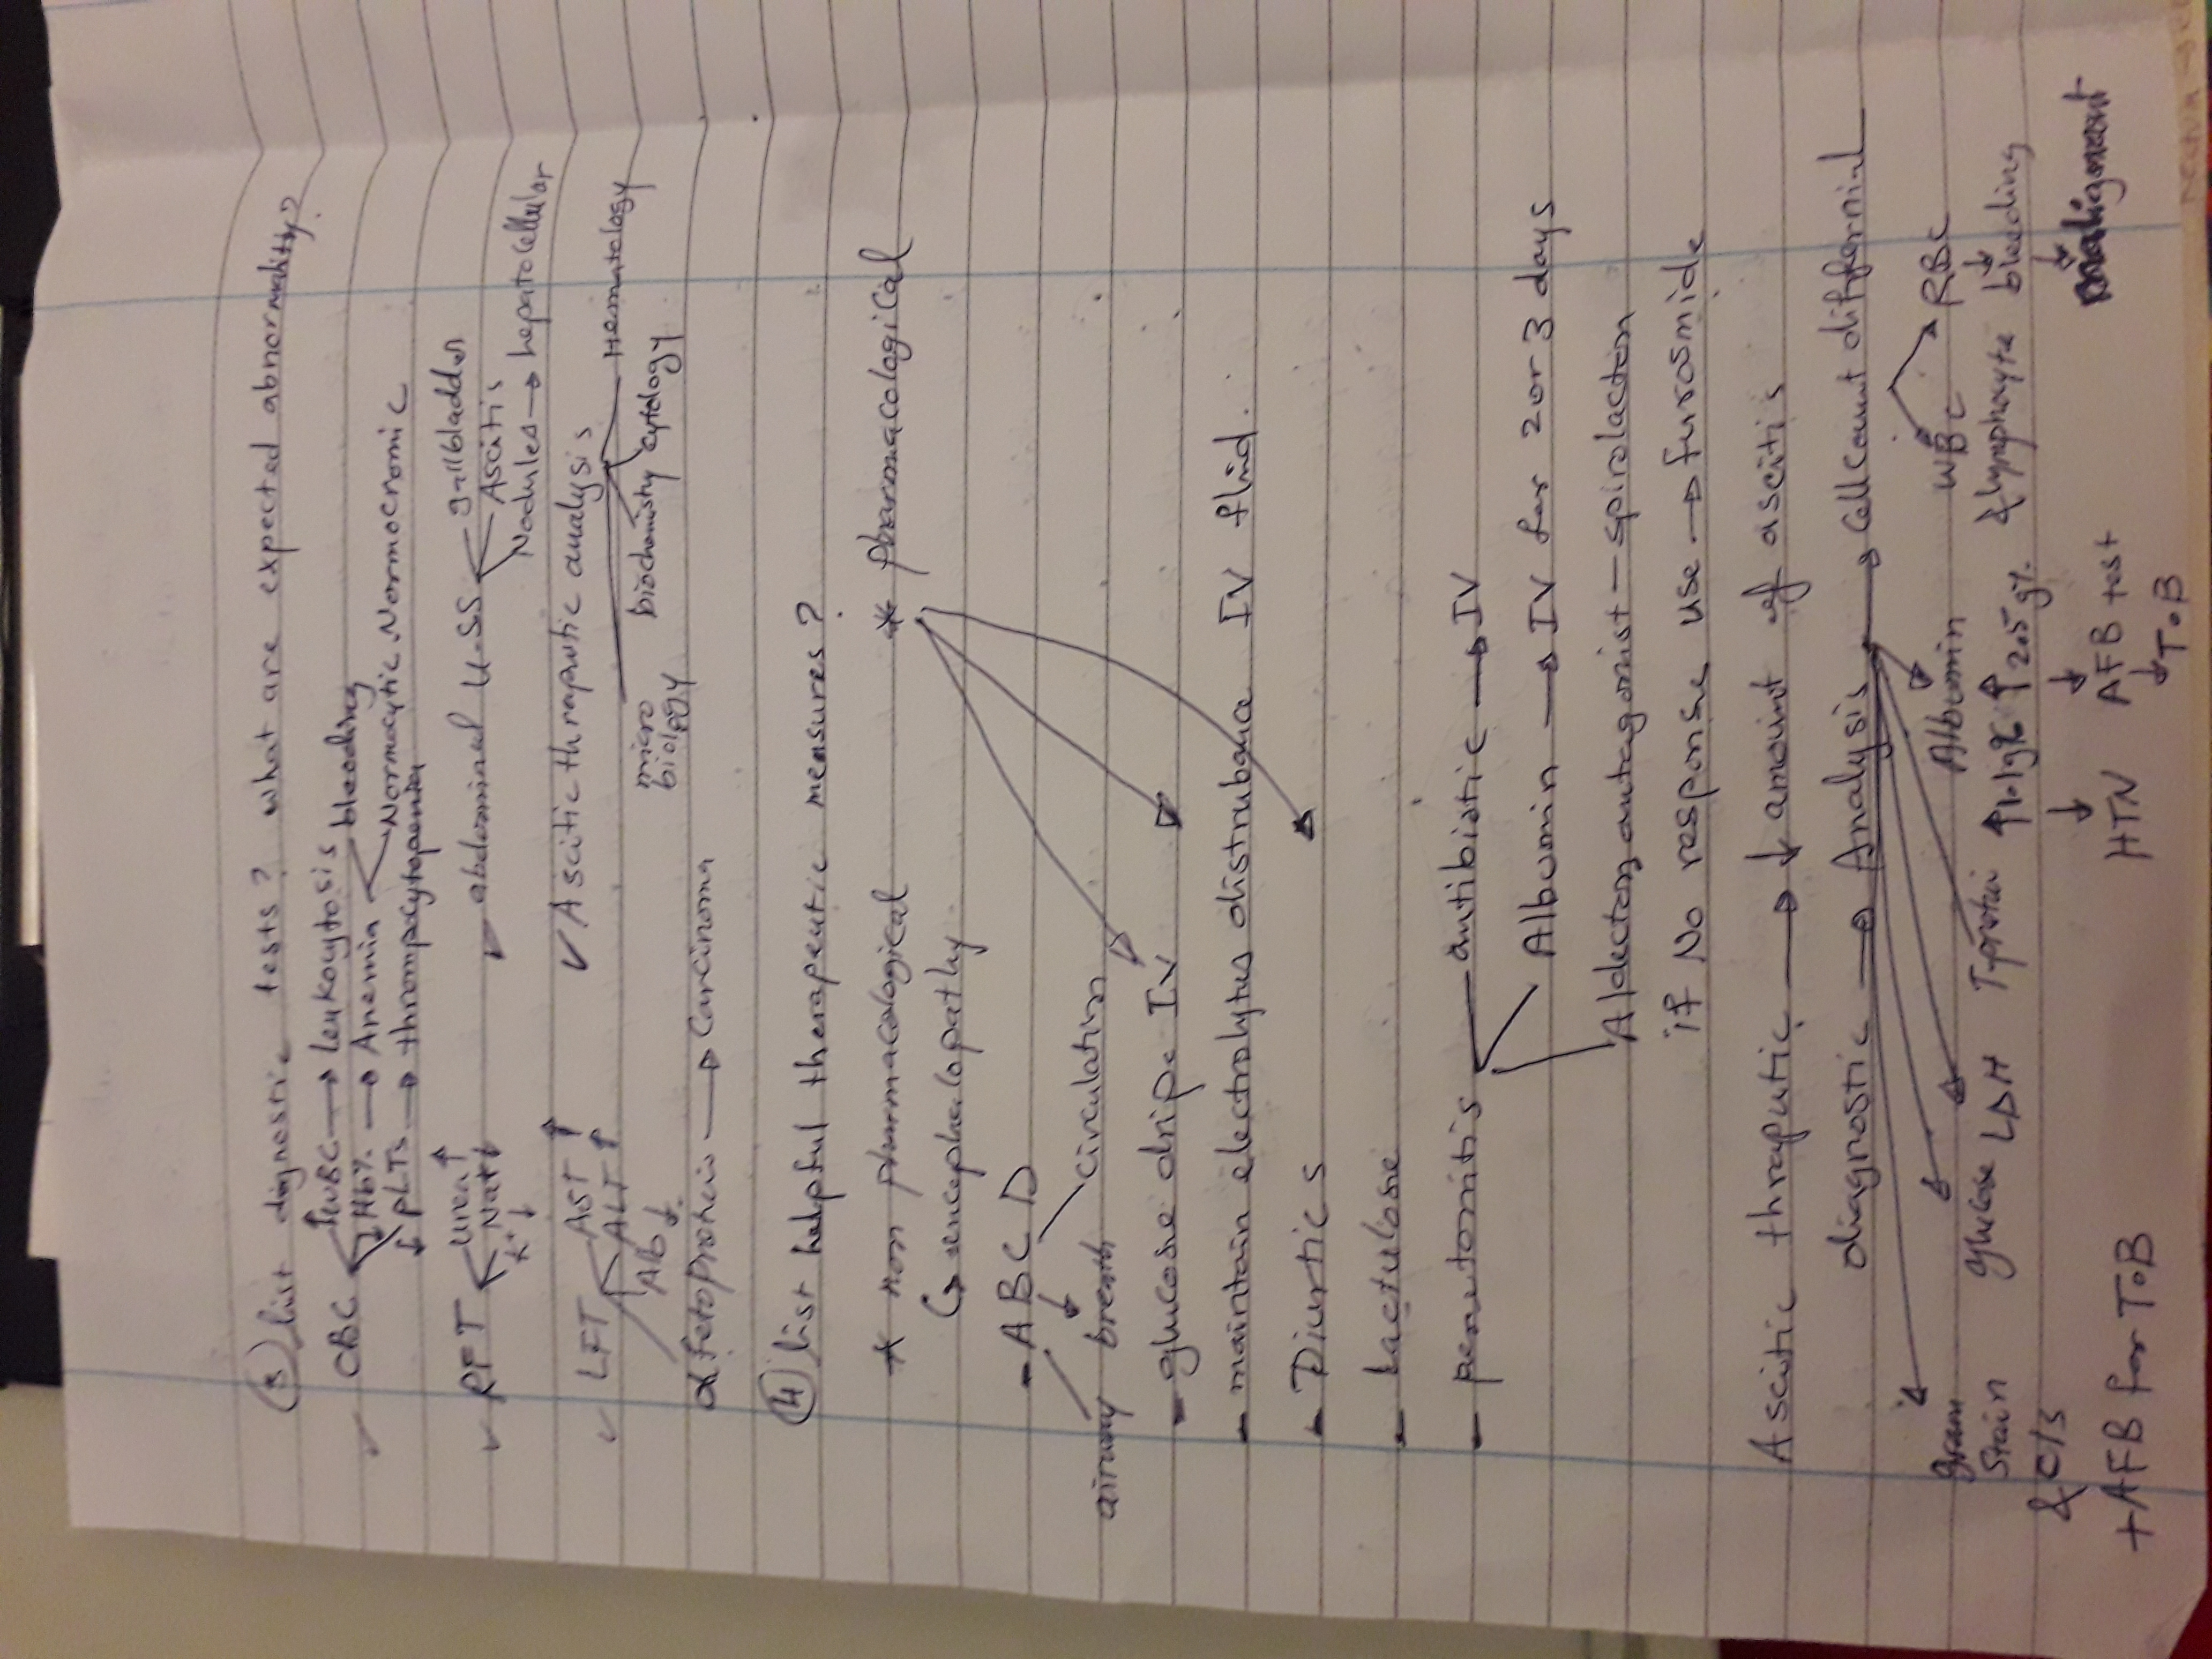 ③ list diagnostic tests? what are expected abnormality?
CBC ↑WBC → leukocytosis bleeding
↓Hb% → Anemia Normocytic Normocromic
↓PLTs → thrompocytopaenia
✓ RFT urea ↑
Na++
K+ ↓
✓ abdominal U-SS gallbladder
Ascitis
Nodules → hepatocellular
✓ LFT AST ↑
ALT ↑
Alb ↓
✓ Ascitic thraputic analysis Hematology
cytology
biochemisty
micro biology
α fetoprotein → Carcinoma
④ list helpful therapeutic measures?
* non pharmacological * pharmacological
↳ encephaelopathy
- A B C D
airway breath circulation
- glucose dripe IV
- maintain electrolytus distrubance IV fluid.
- Diurtics
- Lactulose
- peraetonitis antibiotic → IV
Albumin → IV for 2 or 3 days
Aldectoz antagonist - spirolacton
if No response use → furosmide
Ascitic thraputic → ↓ amount of ascitis
diagnostic → Analysis → Cell count differnial
WBC RBC
Albumin
gram Stain & C/S
glulose LDH Tprotein ↑1.1g% ↑2.5 g%. & lymphocyte ↓ bleeding
↓ HTN ↓ AFB test ↓ malignant
↓ T.B
+ AFB for T.B